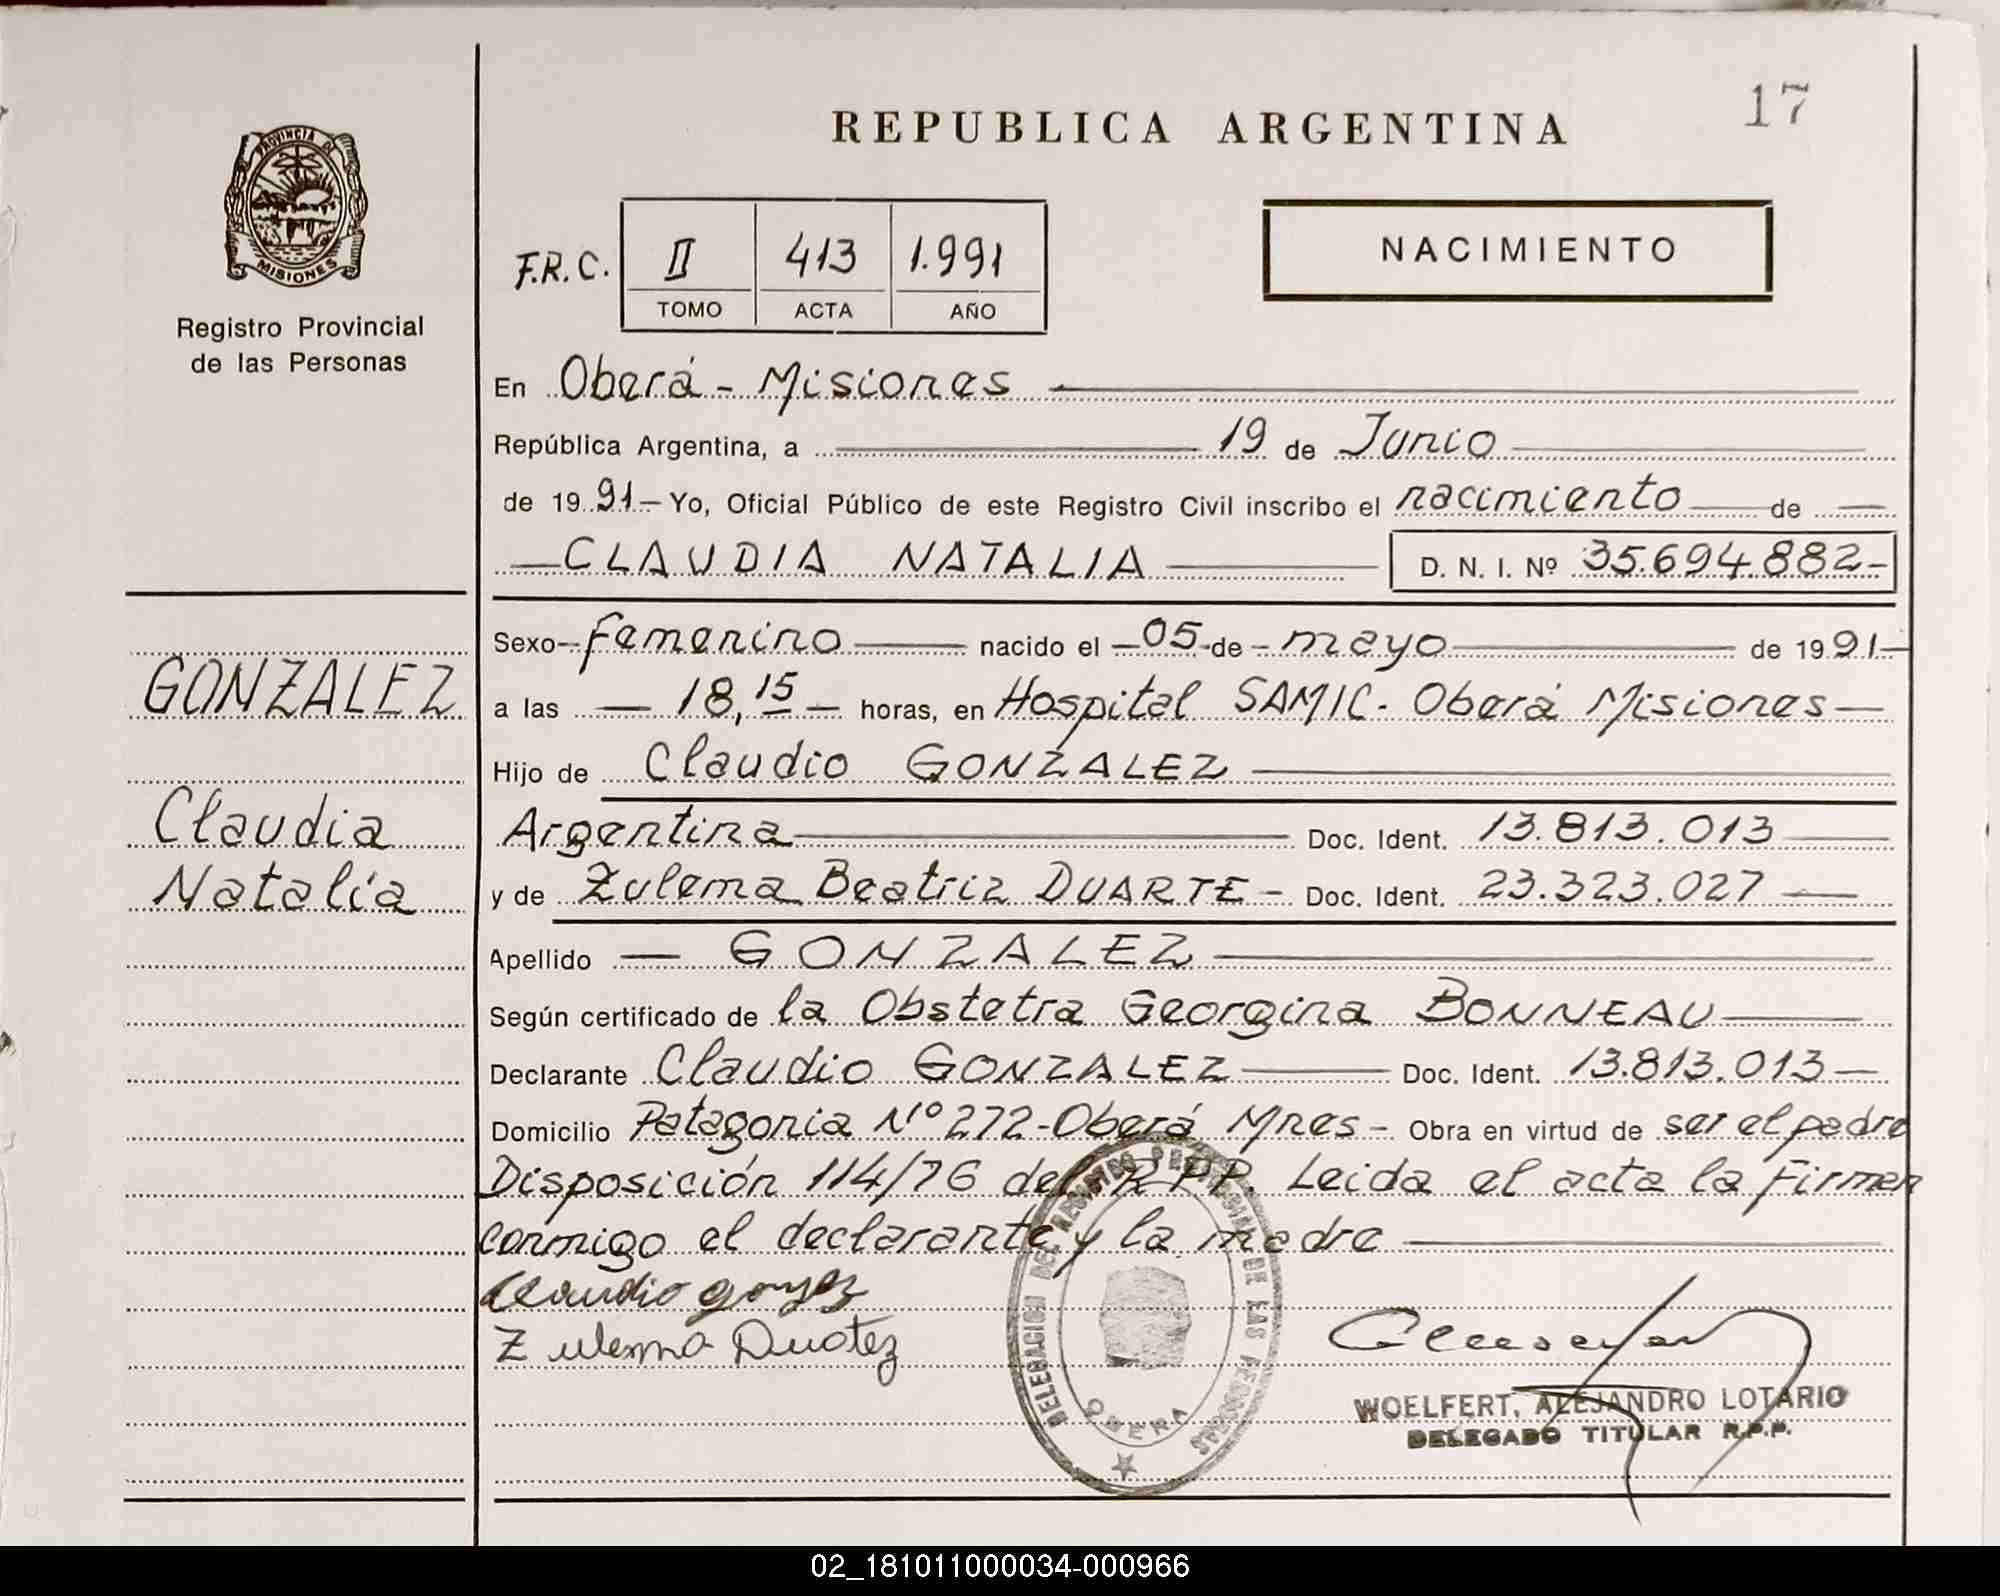 17
REPUBLICA ARGENTINA
PROVINCIA DE
MISIONES
Registro Provincial
de las Personas
NACIMIENTO
F.R.C. II 413 1.991
TOMO ACTA AÑO
En Oberá - Misiones
República Argentina, a 19 de Junio
de 19 91 - Yo, Oficial Público de este Registro Civil inscribo el nacimiento de
CLAUDIA NATALIA D. N. I. Nº 35.694.882-
Sexo - femenino nacido el - 05 - de - mayo de 19 91 -
GONZALEZ
a las - 18,15 - horas, en Hospital SAMIC - Oberá Misiones -
Hijo de Claudio GONZALEZ
Claudia
Argentina Doc. Ident. 13.813.013
Natalia
y de Zulema Beatriz DUARTE - Doc. Ident. 23.323.027
Apellido - GONZALEZ
Según certificado de la Obstetra Georgina BONNEAU
Declarante Claudio GONZALEZ Doc. Ident. 13.813.013 -
Domicilio Patagonia Nº 272 - Oberá Mnes - Obra en virtud de ser el padre
Disposición 114/76 del R.P.P. Leida el acta la firman
conmigo el declarante y la madre
Claudio
Zulema
DELEGACION DEL REGISTRO PROVINCIAL DE LAS PERSONAS
OBERA
WOELFERT, ALEJANDRO LOTARIO
DELEGADO TITULAR R.P.P.
02_181011000034-000966